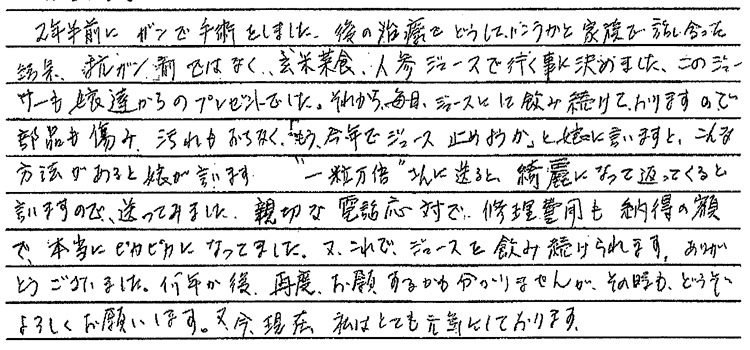 2年半前にガンで手術をしました。後の治療をどうしていこうかと家族で話し合った
結果、抗ガン剤ではなく、玄米菜食、人参ジュースで行く事に決めました。このジュー
サーも娘達からのプレゼントでした。それから、毎日、ジュースにして飲み続けておりますので
部品も傷み、汚れもおちなく、「もう、今年でジュース止めようか」と娘に言いますと、こんな
方法があると娘が言います "一粒万倍"さんに送ると、綺麗になって返ってくると
言いますので、送ってみました。親切な電話応対で、修理費用も納得の額
で、本当にピカピカになってました。又、これで、ジュースを飲み続けられます。ありが
とうございました。何年か後、再度、お願するかも分かりませんが、その時も、どうぞ
よろしくお願いします。又、今、現在、私はとても元気にしております。